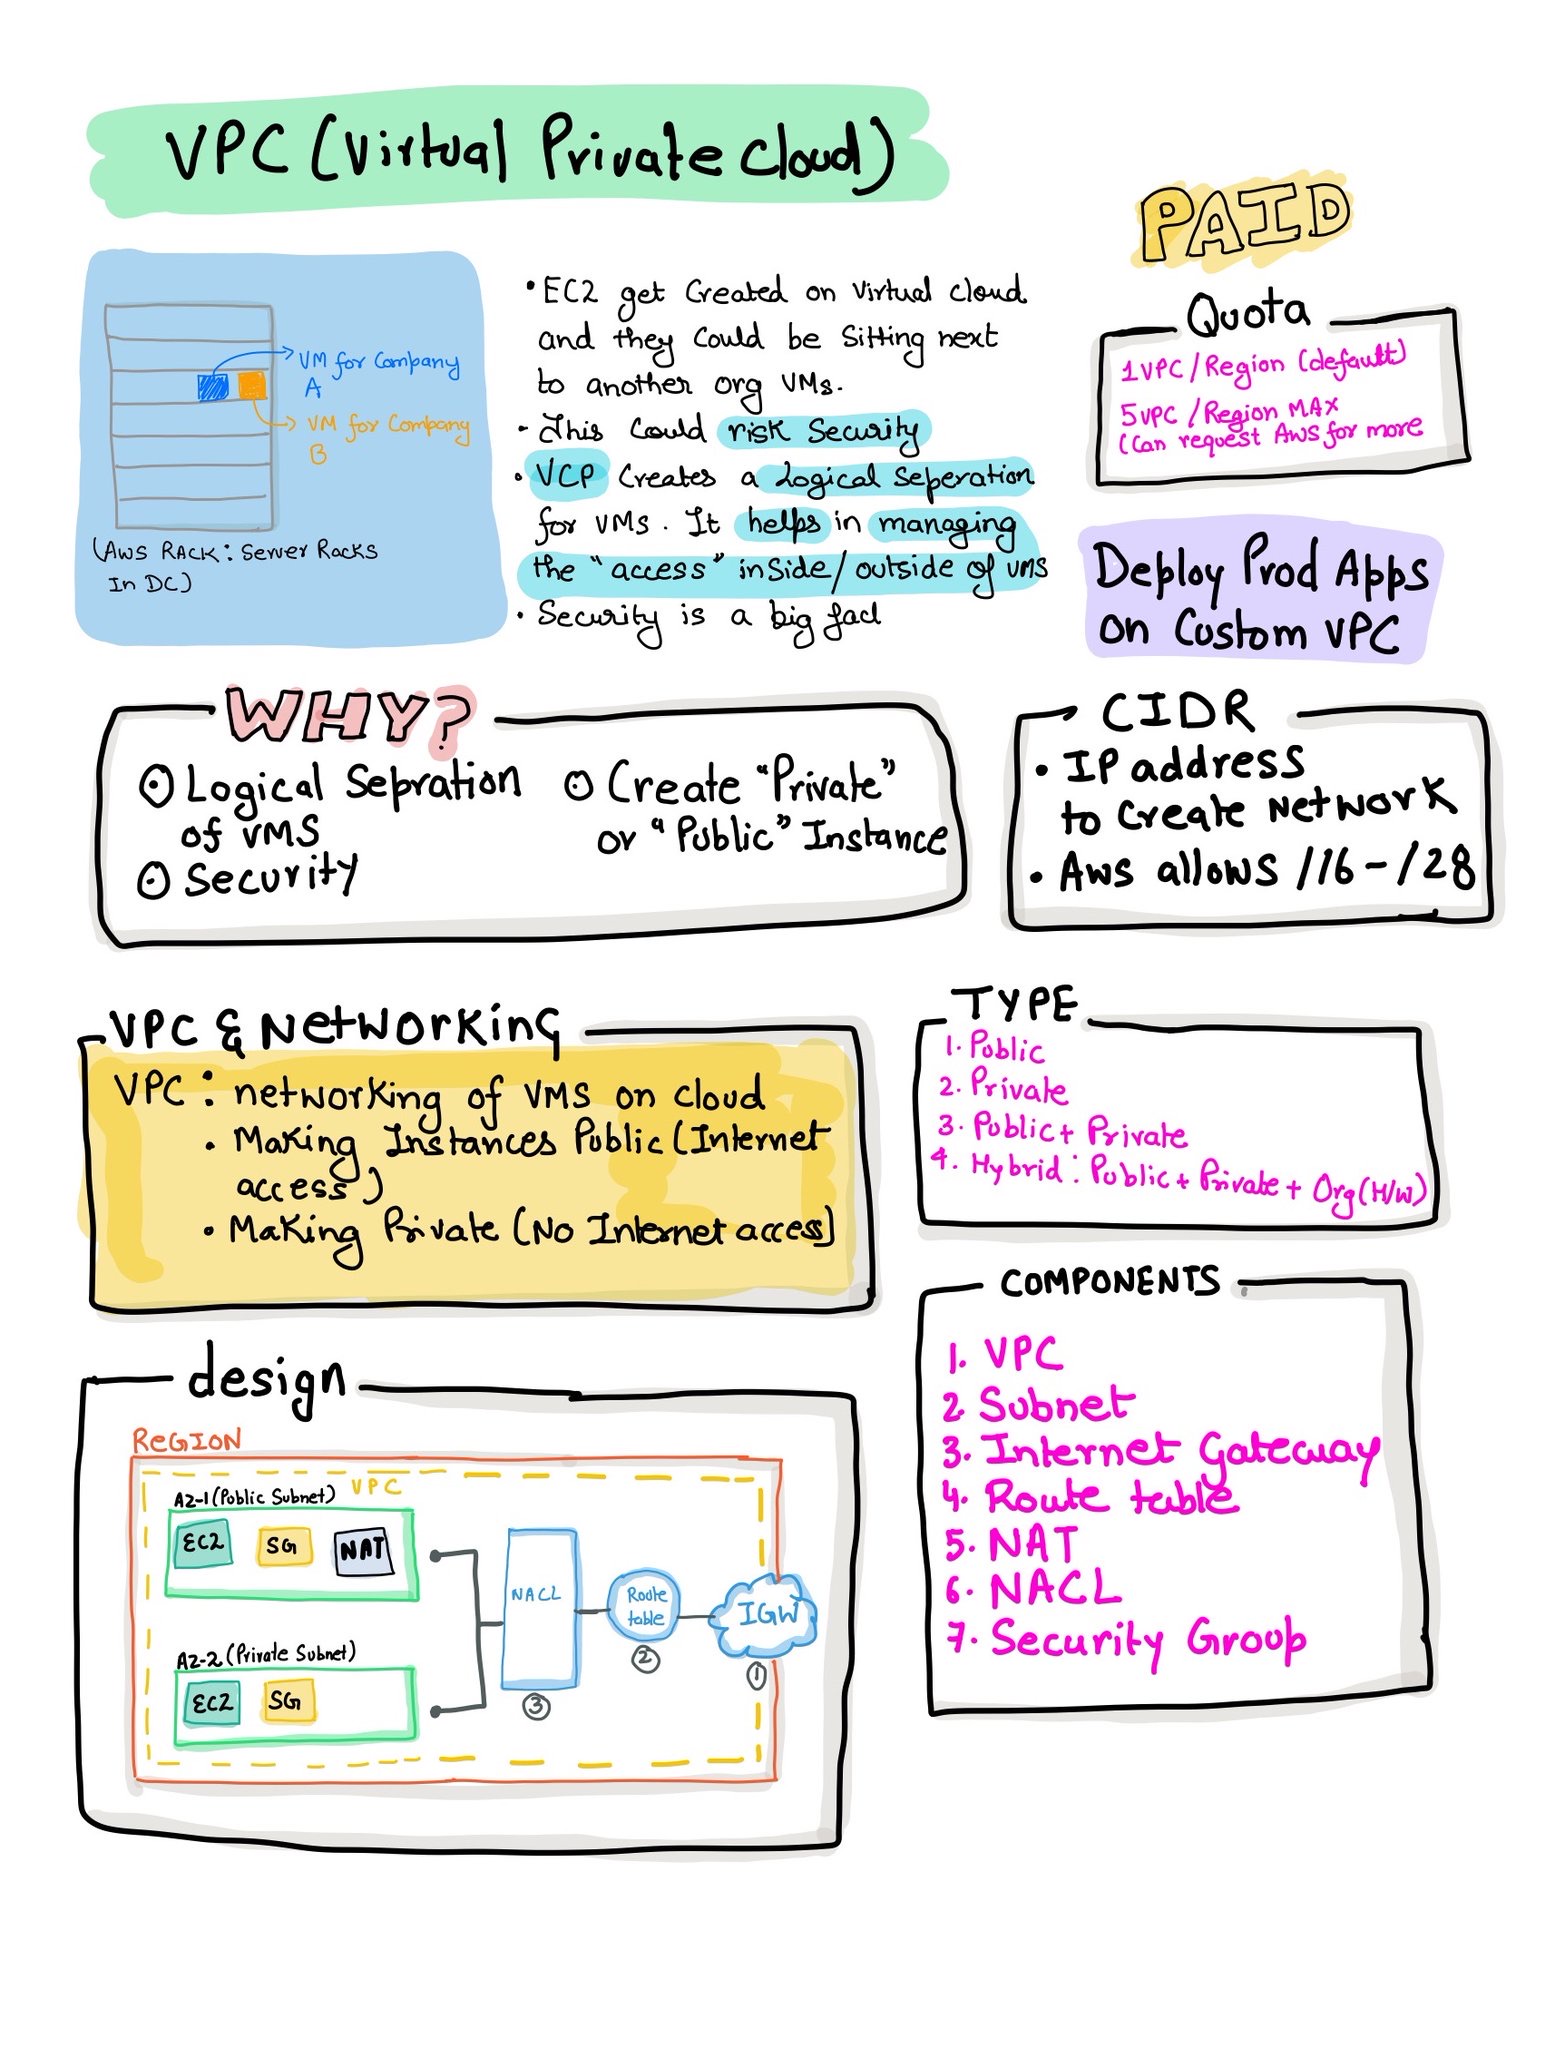 VPC (Virtual Private Cloud)
PAID
VM for Company
A
VM for Company
B
(AWS RACK: Server Racks
In DC)
• EC2 get Created on Virtual cloud
and they Could be Sitting next
to another org VMs.
• This Could risk Security
• VCP Creates a Logical Seperation
for VMs. It helps in managing
the "access" inside/outside of VMs
• Security is a big
Quota
1 VPC/Region (default)
5 VPC/Region MAX
(Can request AWS for more
Deploy Prod Apps
on Custom VPC
WHY?
Logical Sepration
of VMS
Security
Create "Private"
or "Public" Instance
CIDR
• IP address
to Create Network
• AWS allows /16 - /28
VPC & Networking
VPC: networking of VMS on cloud
• Making Instances Public (Internet
access)
• Making Private (No Internet access)
TYPE
1. Public
2. Private
3. Public + Private
4. Hybrid: Public + Private + Org (H/W)
COMPONENTS
1. VPC
2. Subnet
3. Internet Gateway
4. Route table
5. NAT
6. NACL
7. Security Group
design
REGION
VPC
AZ-1 (Public Subnet)
EC2
SG
NAT
AZ-2 (Private Subnet)
EC2
SG
NACL
3
Route
table
2
IGW
1